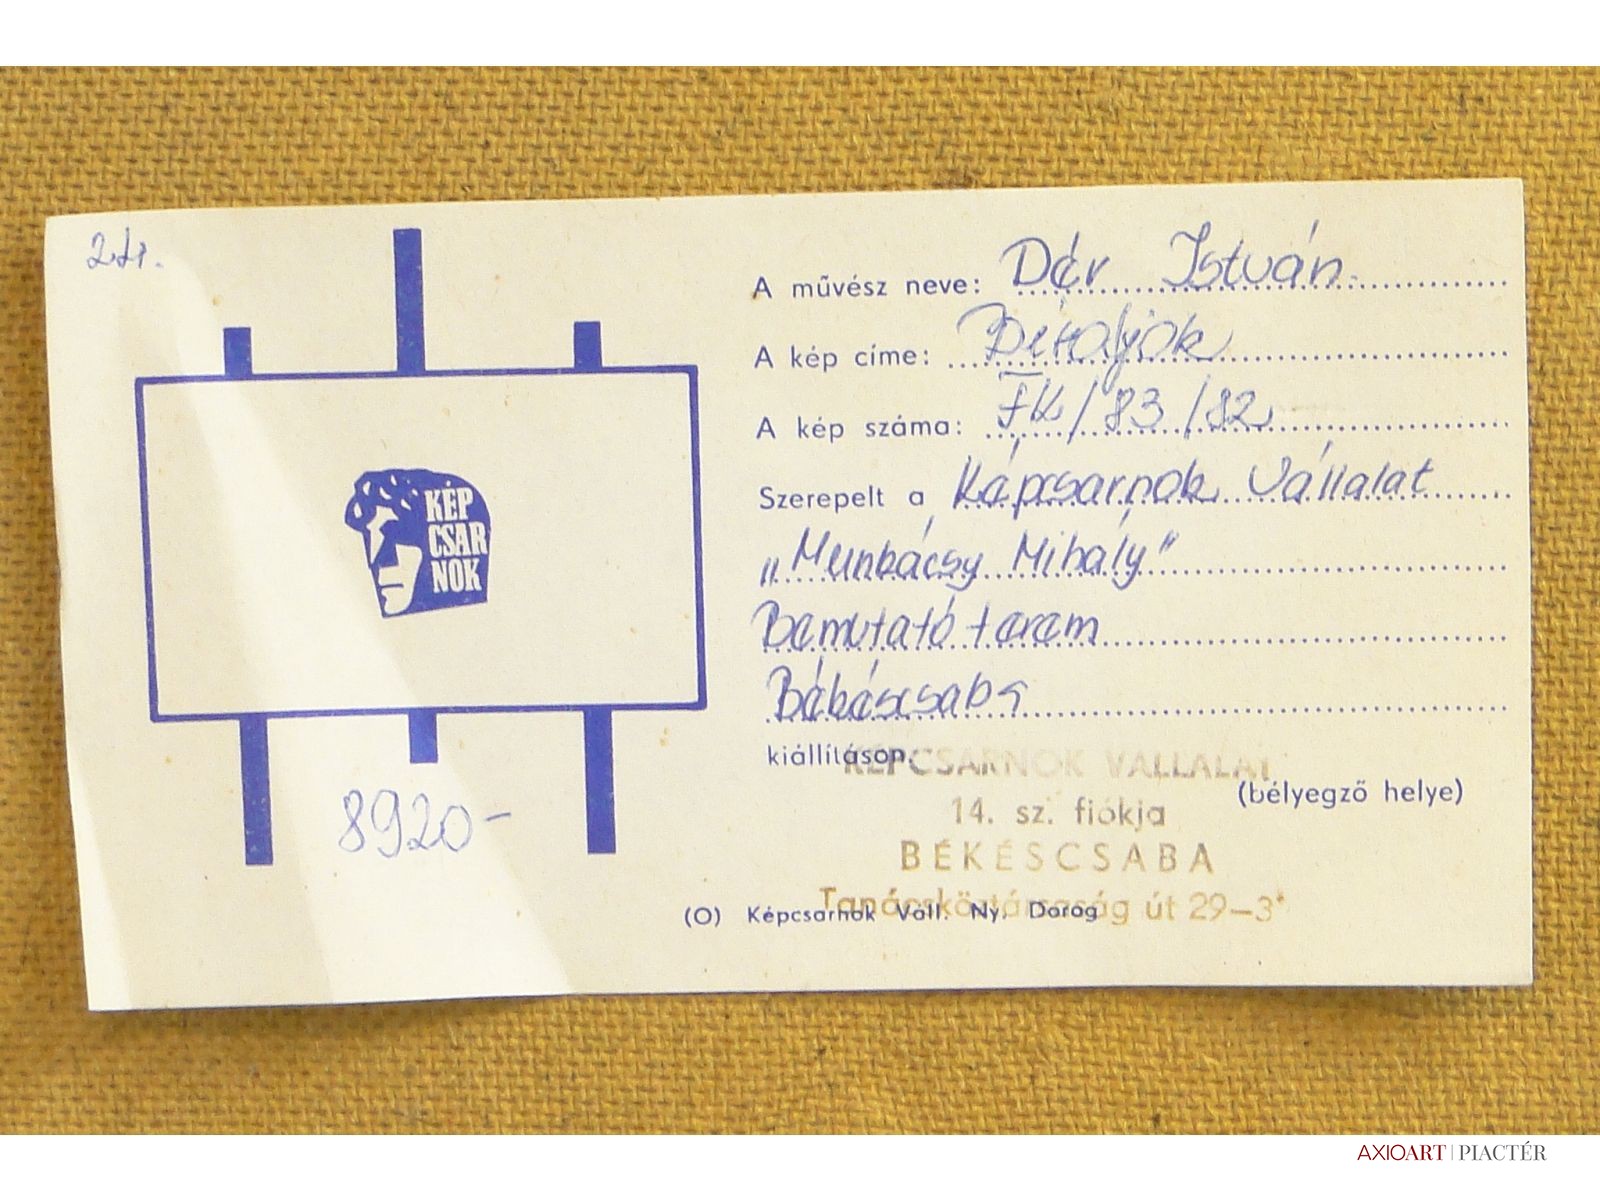 A művész neve: Dér István
A kép címe:
A kép száma: FK/83/82
Szerepelt a Képcsarnok Vállalat
„Munkácsy Mihály"
Bemutató terem
Békéscsaba
kiállításon.
KÉPCSARNOK VÁLLALAT
(bélyegző helye)
14. sz. fiókja
BÉKÉSCSABA
Tanácsköztársaság út 29–3
(O) Képcsarnok Váll. Ny. Dorog
KÉP
CSAR
NOK
8920–
AXIOART | PIACTÉR